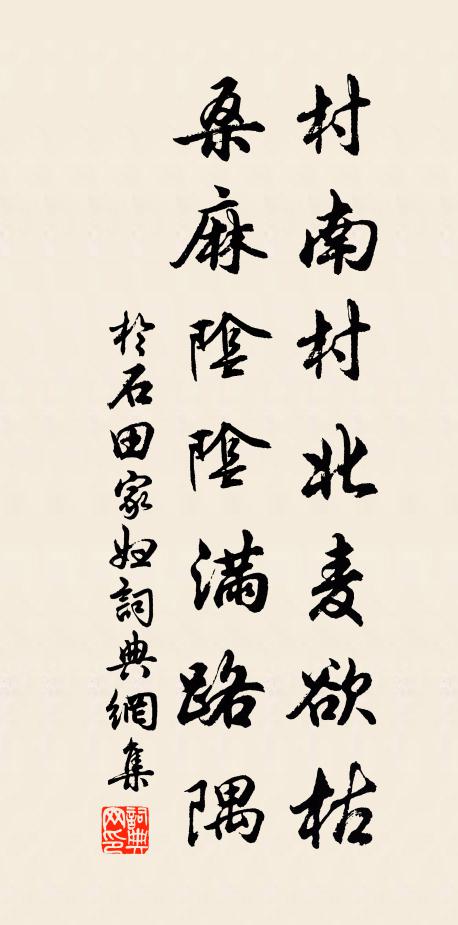 村南村北麦欲枯
桑麻陰陰满路隅
於石田家妇詞典網集
詞典網印